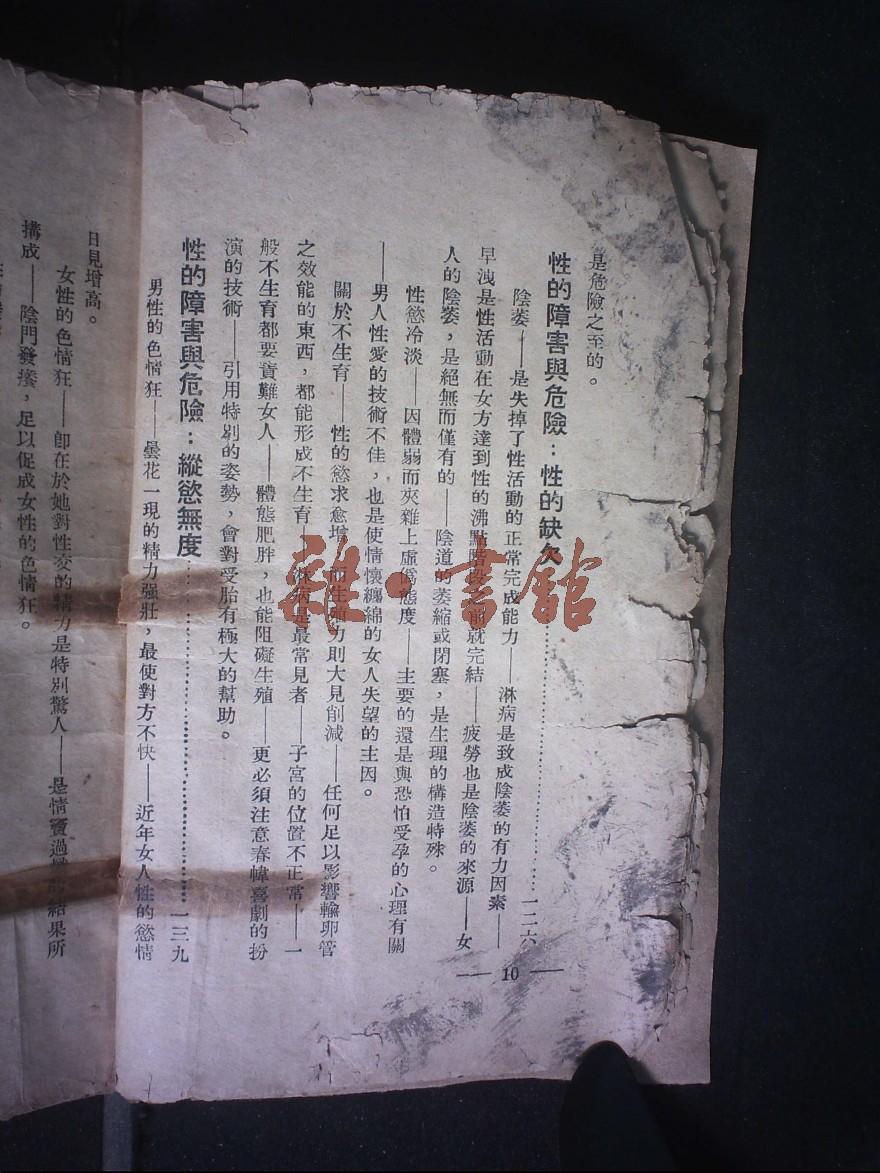 是危險之至的。
性的障害與危險：性的缺欠……一二六
陰萎——是失掉了性活動的正常完成能力——淋病是致成陰萎的有力因素——
早洩是性活動在女方達到性的沸點階段之前就完結——疲勞也是陰萎的來源——女
人的陰萎，是絕無而僅有的——陰道的萎縮或閉塞，是生理的構造特殊。
性慾冷淡——因體弱而夾雜上虛僞態度——主要的還是與恐怕受孕的心理有關
——男人性愛的技術不佳，也是使情懷纏綿的女人失望的主因。
關於不生育——性的慾求愈增，而生殖力則大見削減——任何足以影響輸卵管
之效能的東西，都能形成不生育——淋病是最常見者——子宮的位置不正常——一
般不生育都要責難女人——體態肥胖，也能阻礙生殖——更必須注意春幃喜劇的扮
演的技術——引用特別的姿勢，會對受胎有極大的幫助。
性的障害與危險：縱慾無度……一三九
男性的色情狂——曇花一現的精力强壯，最使對方不快——近年女人性的慾情
— 10 —
日見增高。
女性的色情狂——卽在於她對性交的精力是特別驚人——是情竇過結果所
搆成——陰門發癢，足以促成女性的色情狂。
雜·書館